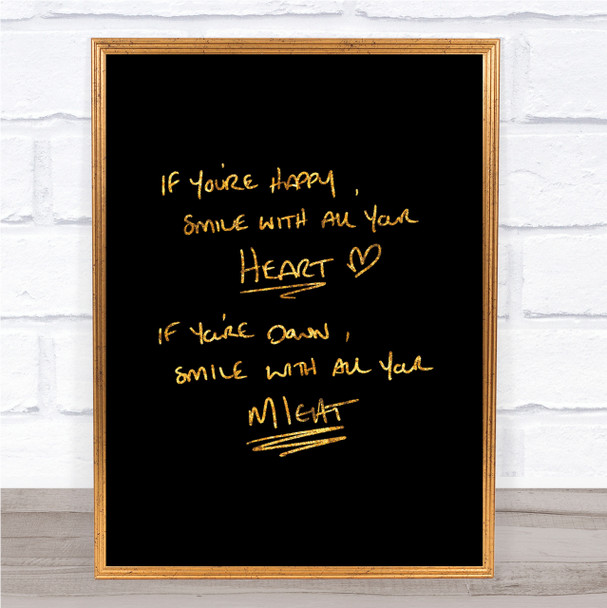 IF YOU'RE HAPPY,
SMILE WITH ALL YOUR
HEART
IF YOU'RE DOWN,
SMILE WITH ALL YOUR
MIGHT